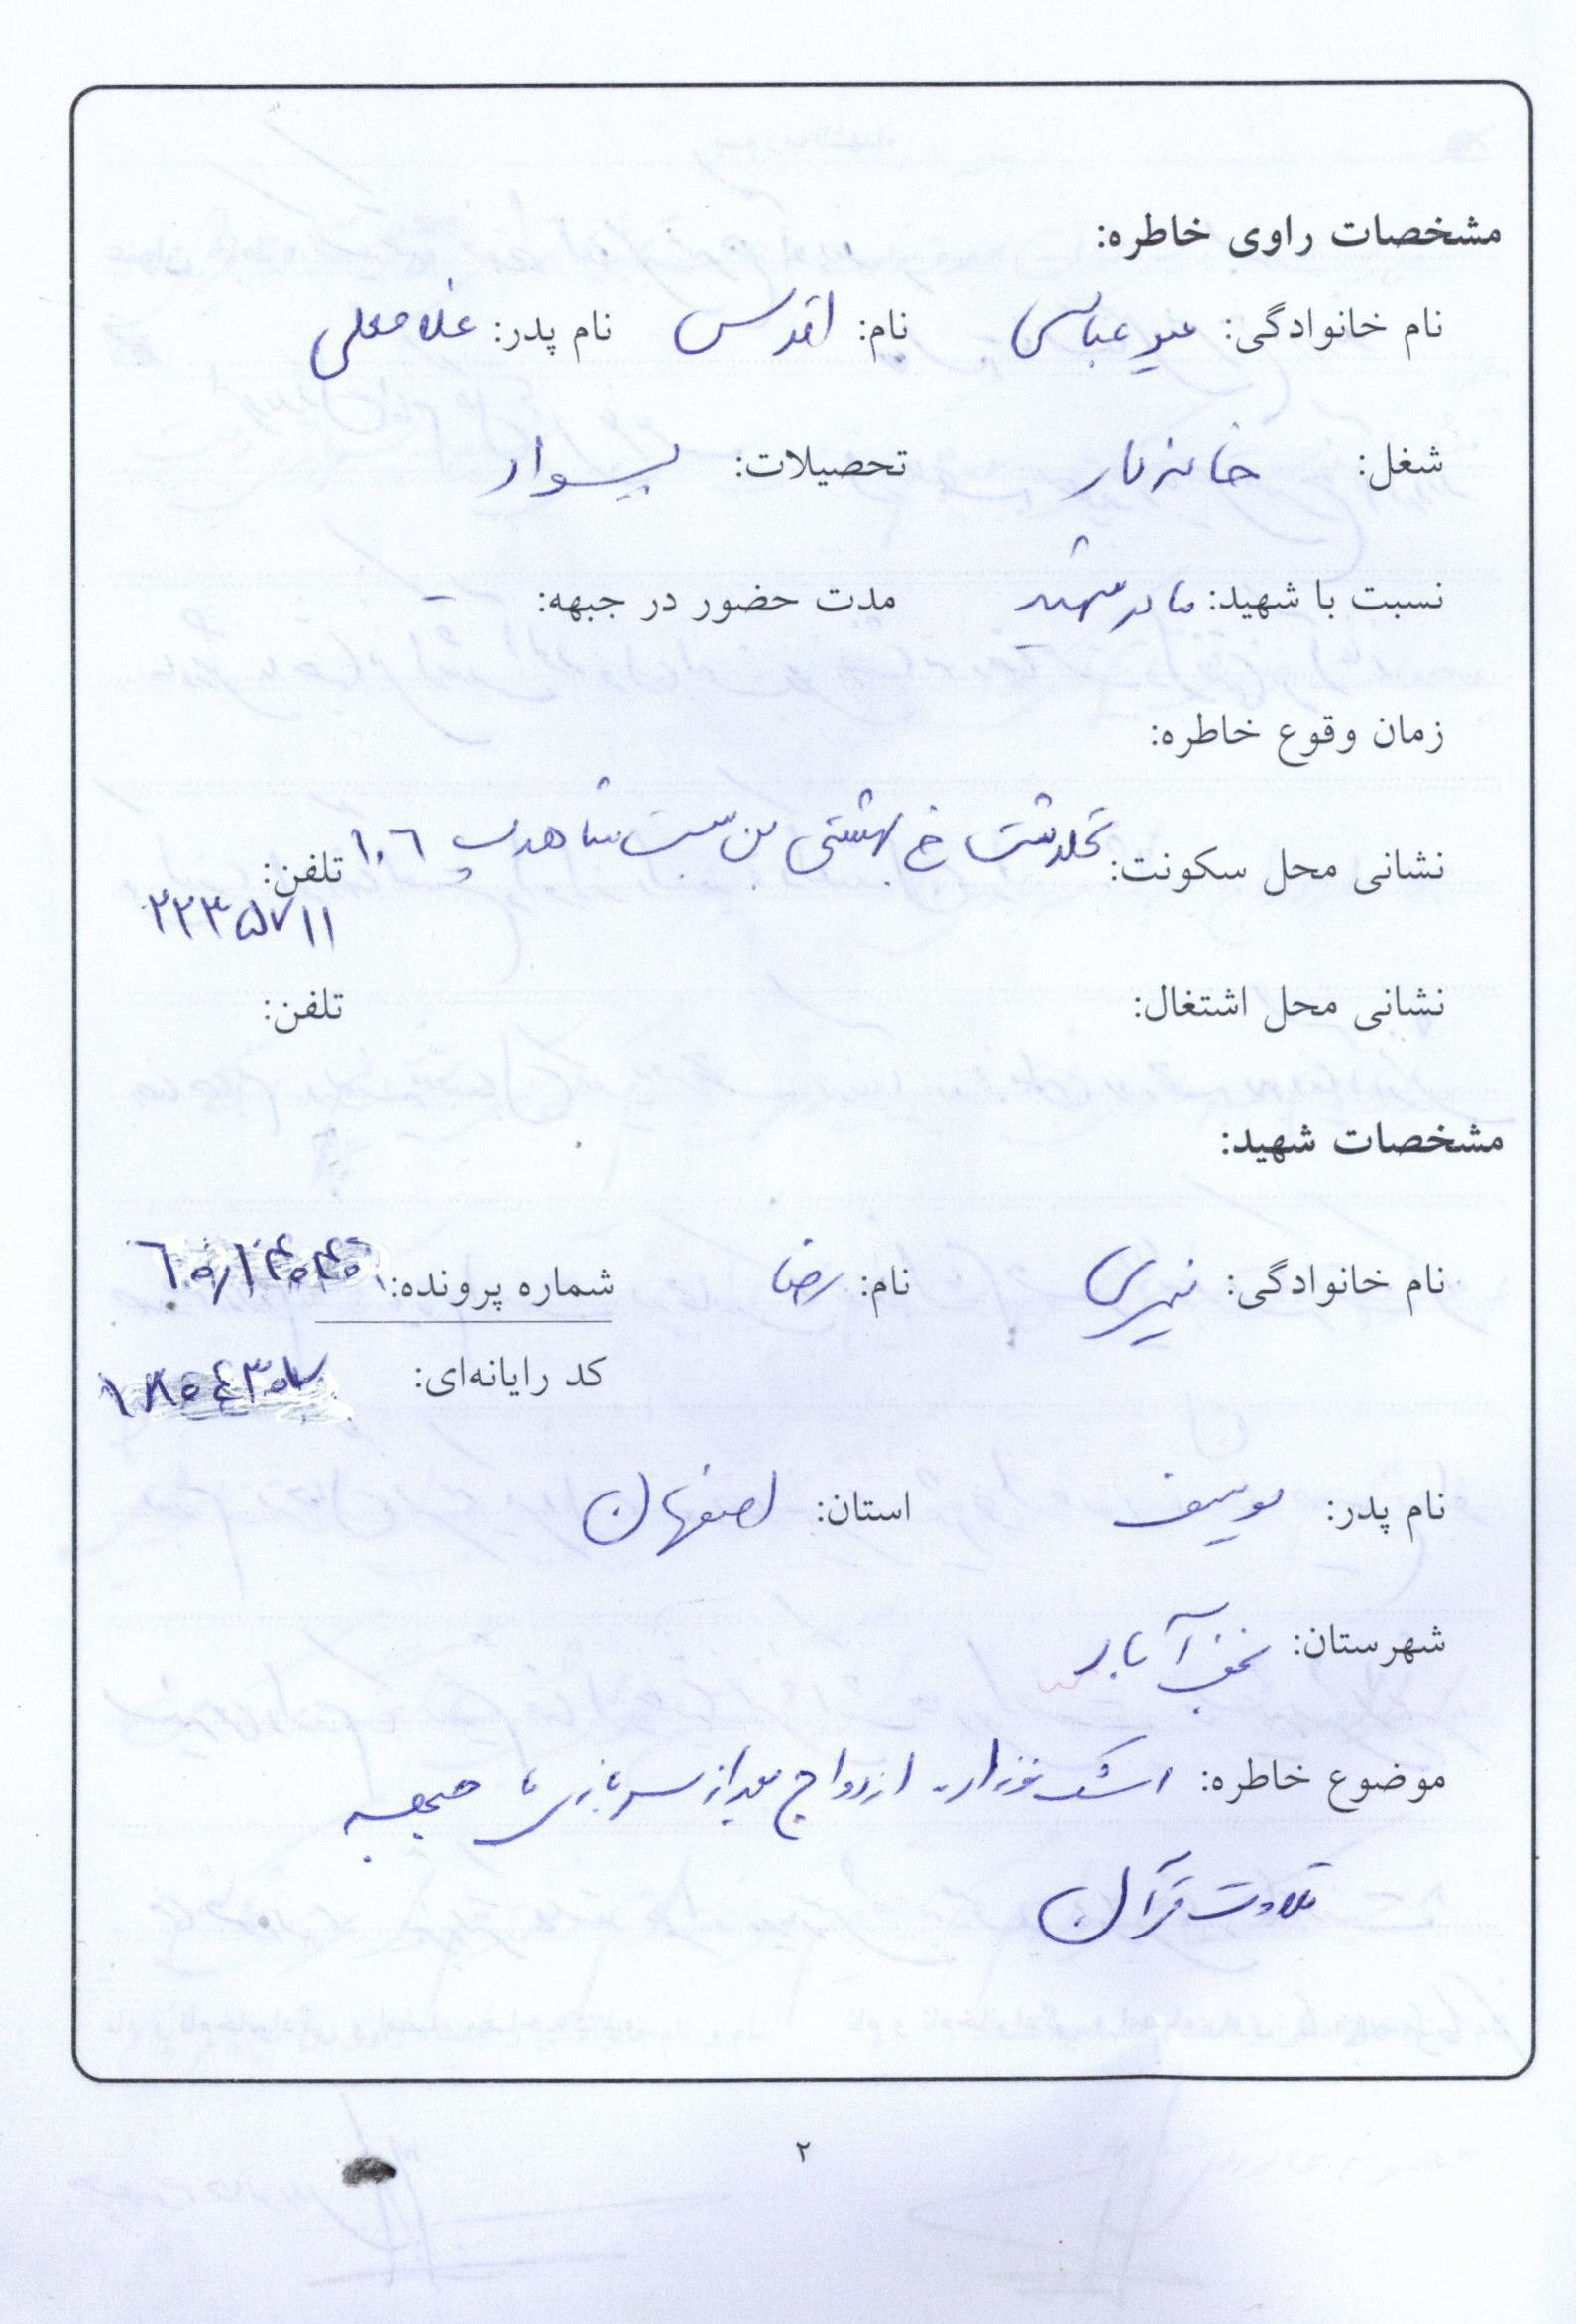 مشخصات راوی خاطره:
نام خانوادگی: میرعباسی نام: اقدس نام پدر: غلامعلی
شغل: خانه‌دار تحصیلات: بیسواد
نسبت با شهید: مادر شهید مدت حضور در جبهه: –
زمان وقوع خاطره:
نشانی محل سکونت: گلدشت خ بهشتی بن بست شاهد پ ۱۰۶ تلفن:
۲۲۳۵۷۱۱
نشانی محل اشتغال: تلفن:
مشخصات شهید:
نام خانوادگی: نام: رضا شماره پرونده:
کد رایانه‌ای: ۱۸۰۵۴۳۰۷
نام پدر: یوسف استان: اصفهان
شهرستان: نجف آباد
موضوع خاطره: ازدواج بعد از سربازی
تلاوت قرآن
۲